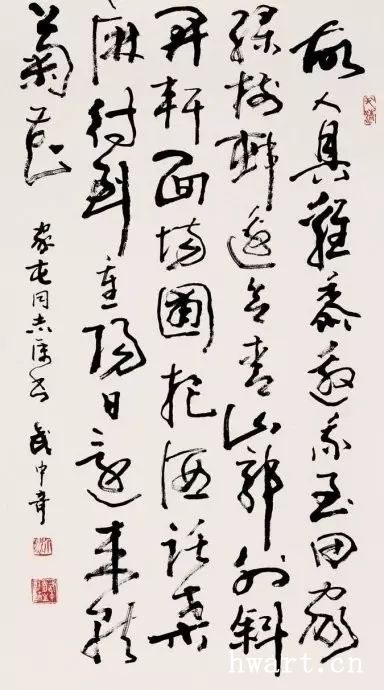 故人具雞黍邀我至田家
綠樹邨邊合青山郭外斜
開軒面場圃把酒話桑
麻待到重陽日還來就
菊花
家屯同志屬書 武中奇
hwart.cn